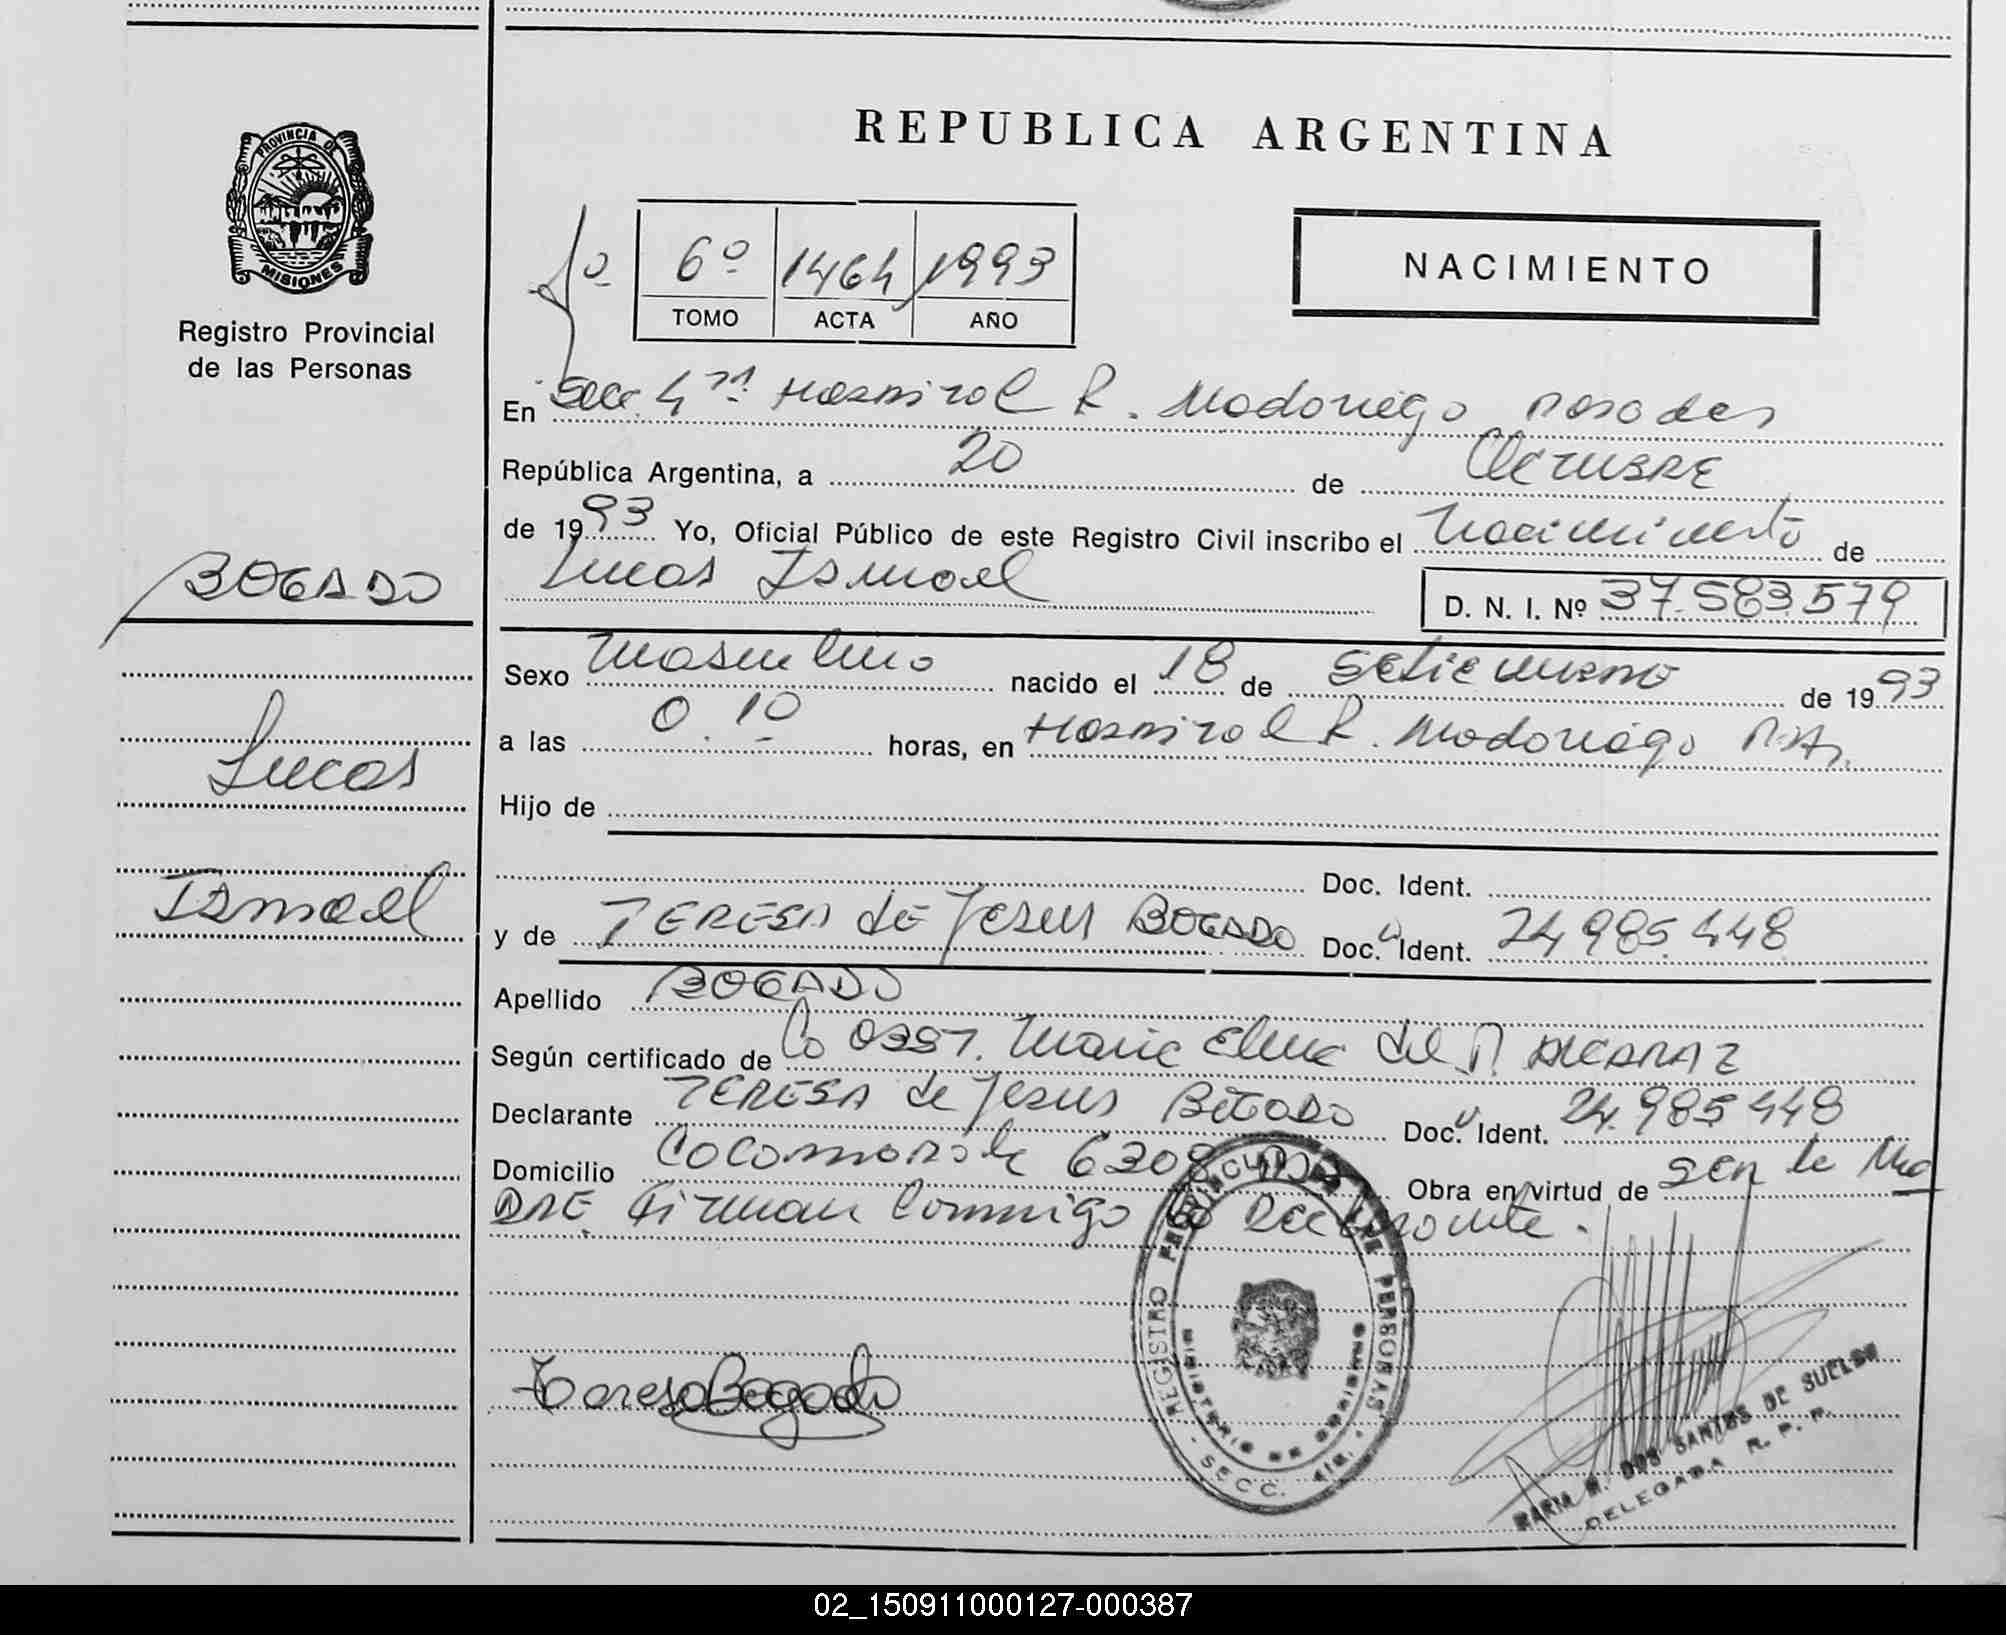 REPUBLICA ARGENTINA
PROVINCIA DE
MISIONES
Registro Provincial
de las Personas
6º 1464 1993
TOMO ACTA AÑO
NACIMIENTO
En Secc. 4ta Hospital R. Madariaga Posadas
República Argentina, a 20 de Octubre
de 1993 Yo, Oficial Público de este Registro Civil inscribo el Nacimiento de
Lucas Ismael D. N. I. Nº 37.583.579
BOGADO
Lucas
Ismael
Sexo Masculino nacido el 18 de Setiembre de 1993
a las 0.10 horas, en Hospital R. Madariaga
Hijo de
Doc. Ident.
y de TERESA de Jesus BOGADO Doc. Ident. 24.985.448
Apellido BOGADO
Según certificado de La Obst. Maria Elena del ALCARAZ
Declarante TERESA de Jesus BOGADO Doc. Ident. 24.985.448
Domicilio 6308 Obra en virtud de ser la Ma
DRE. Firman conmigo la Declarante.
Teresa Bogado
REGISTRO PROVINCIAL DE LAS PERSONAS
MINISTERIO DE GOBIERNO
SECC. 4ta.
MARIA DOS SANTOS DE SUELDO
DELEGADA R. P. P.
02_150911000127-000387